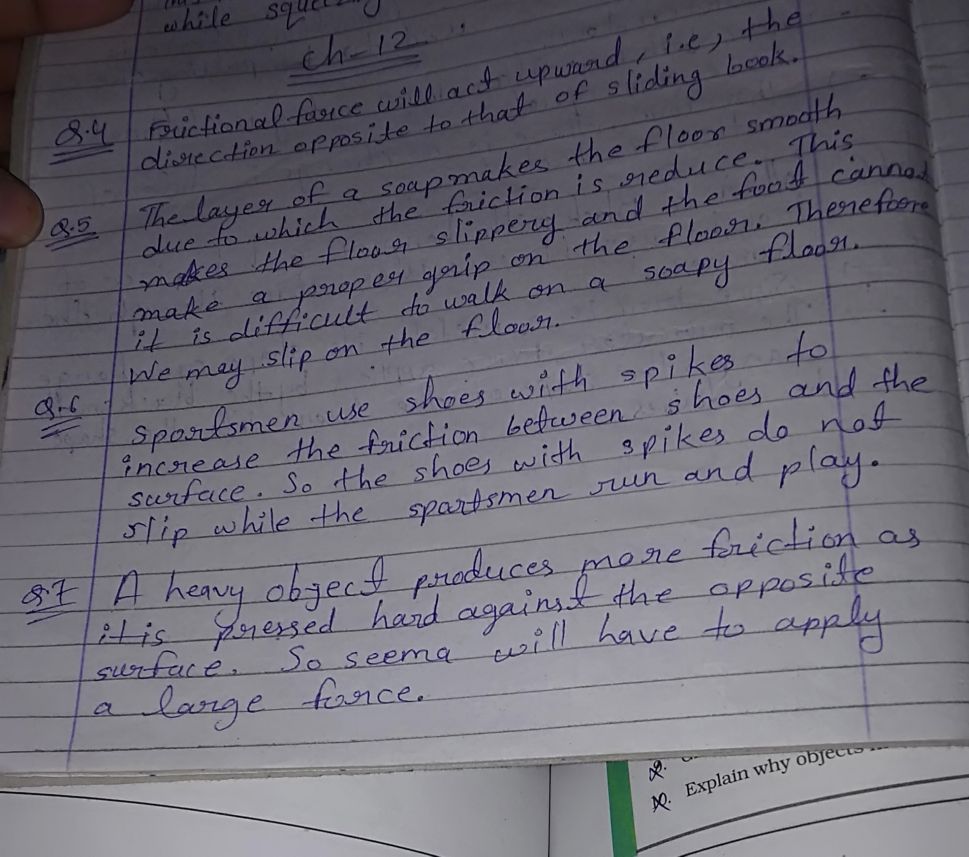 while
ch-12
Q.4 Frictional force will act upward, i.e, the
direction opposite to that of sliding book.
Q.5 The layer of a soap makes the floor smooth
due to which the friction is reduce. This
makes the floor slippery and the foot cannot
make a proper grip on the floor. Therefore
it is difficult to walk on a soapy floor.
We may slip on the floor.
Q.6 Sportsmen use shoes with spikes to
increase the friction between shoes and the
surface. So the shoes with spikes do not
slip while the sportsmen run and play.
Q.7 A heavy object produces more friction as
it is pressed hard against the opposite
surface. So seema will have to apply
a large force.
Explain why objects